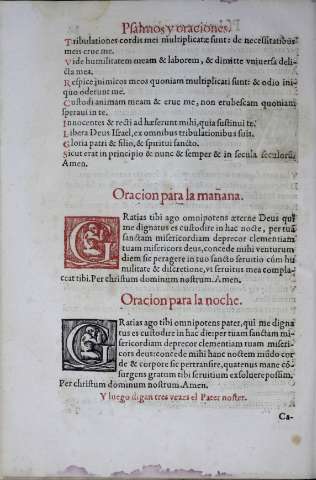 Psalmos y oraciones.
Tribulationes cordis mei multiplicatæ sunt: de necessitatibus
meis erue me.
Vide humilitatem meam & laborem, & dimitte vniuersa deli-
cta mea.
Respice inimicos meos quoniam multiplicati sunt: & odio ini-
quo oderunt me.
Custodi animam meam & erue me, non erubescam quoniam
speraui in te.
Innocentes & recti adhæserunt mihi, quia sustinui te.
Libera Deus Israel, ex omnibus tribulationibus suis.
Gloria patri & filio, & spiritui sancto.
Sicut erat in principio & nunc & semper & in secula seculorū,
Amen.
Oracion para la mañana.
GRatias tibi ago omnipotens æterne Deus qui
me dignatus es custodire in hac nocte, per tuā
sanctam misericordiam deprecor clementiam
tuam misericors deus, concede mihi venturum
diem sic peragere in tuo sancto seruitio cùm hu
militate & discretione, vt seruitus mea compla-
ceat tibi. Per christum dominum nostrum. Amen.
Oracion para la noche.
GRatias ago tibi omnipotens pater, qui me digna
tus es custodire in hac die: per tuam sanctam mi-
sericordiam deprecor clementiam tuam miseri-
cors deus: concede mihi hanc noctem mūdo cor
de & corpore sic pertransire, quatenus mane cō-
surgens gratum tibi seruitium exsoluere possim.
Per christum dominum nostrum. Amen.
Y luego digan tres vezes el Pater noster.
Ca-